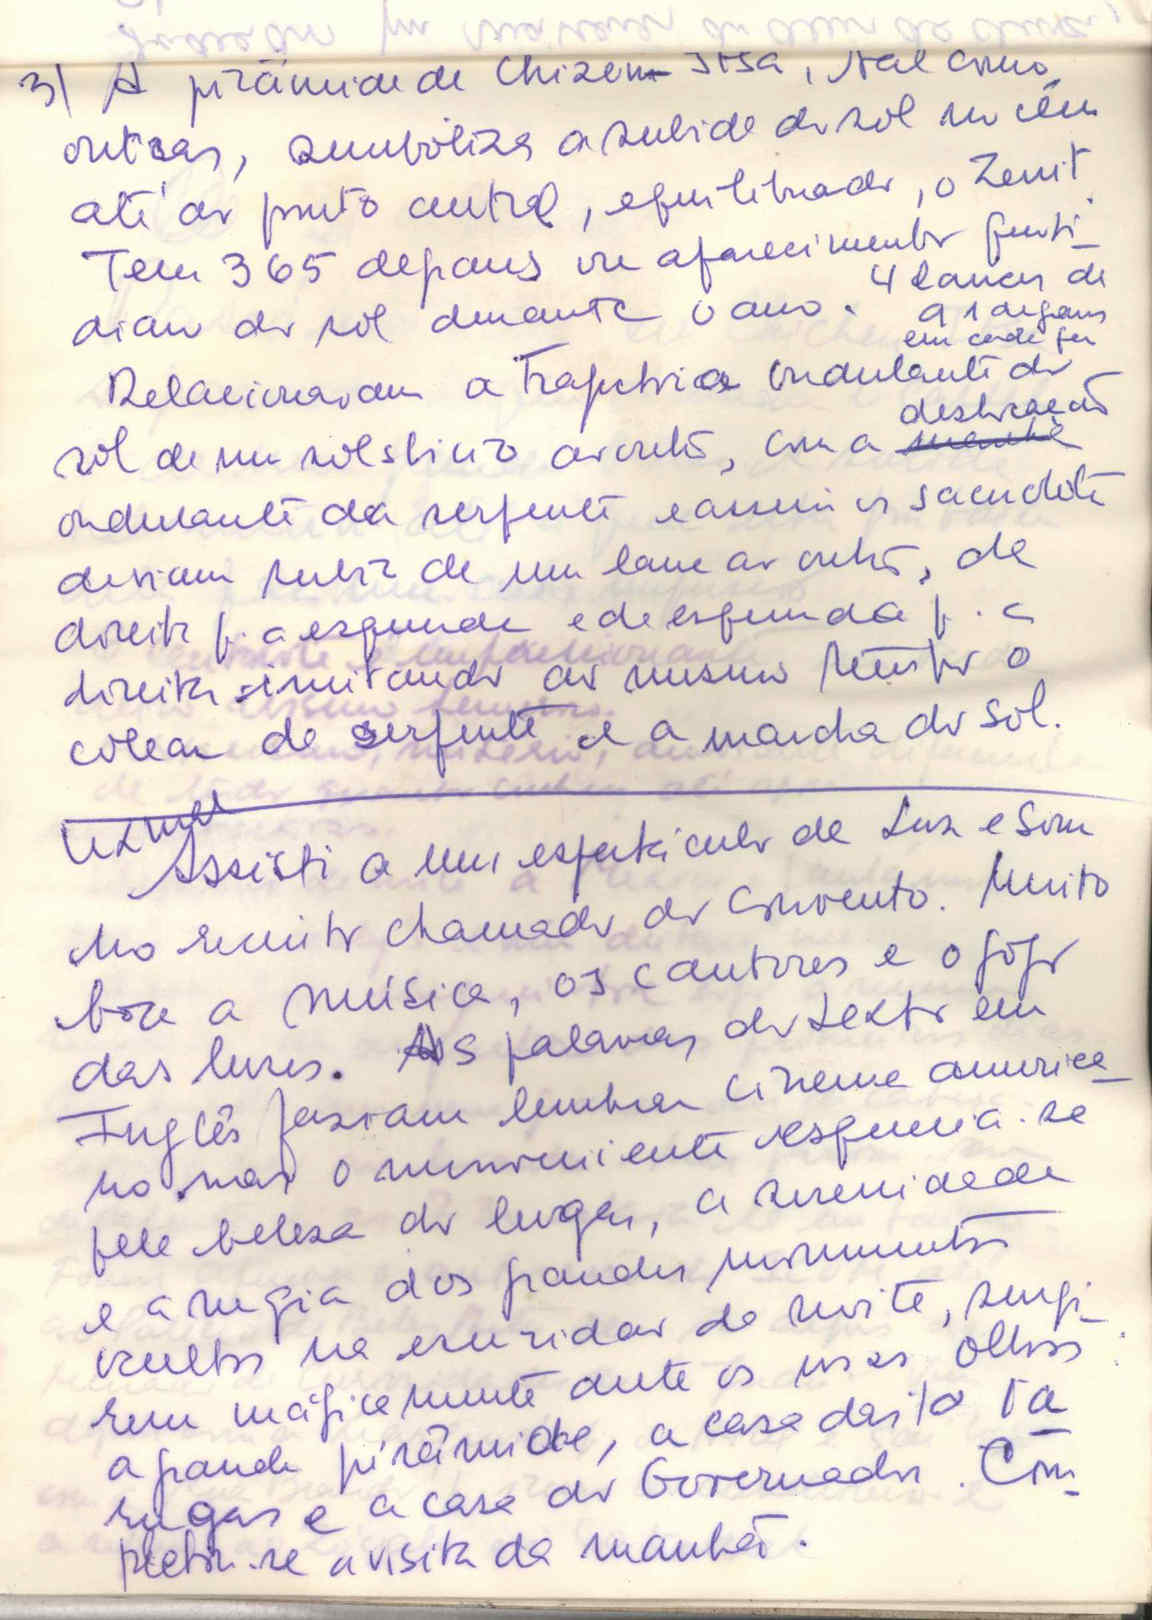 3) A pirâmide de Chizen Itsa, tal como
outras, simboliza a subida do sol no céu
até ao ponto central, equilibrado, o Zenit.
Tem 365 degraus ou aparecimento quoti-
diano do sol durante o ano. 4 lances de
91 degraus
em cada
Relacionaram a trajectória ondulante do
sol de um solsticio ao outro, com a deslocação
ondulante da serpente e assim os sacerdotes
deviam subir de um lance ao outro, da
direita p. a esquerda e da esquerda p. a
direita imitando ao mesmo tempo o
colear da serpente e a marcha do sol.
Uxmal
Assisti a um espectáculo de Luz e Som
no recinto chamado do Convento. Muito
boa a música, os cantores e o jogo
das luzes. As palavras do texto em
Inglês faziam lembrar cinema america-
no mas o inconveniente esquecia-se
pela beleza do lugar, a serenidade
e a magia dos grandes monumentos
ocultos na escuridão da noite, surgi-
rem mágicamente ante os nossos olhos:
a grande pirâmide, a casa das tar-
tarugas e a casa do Governador. Com-
pletou-se a visita da manhã.